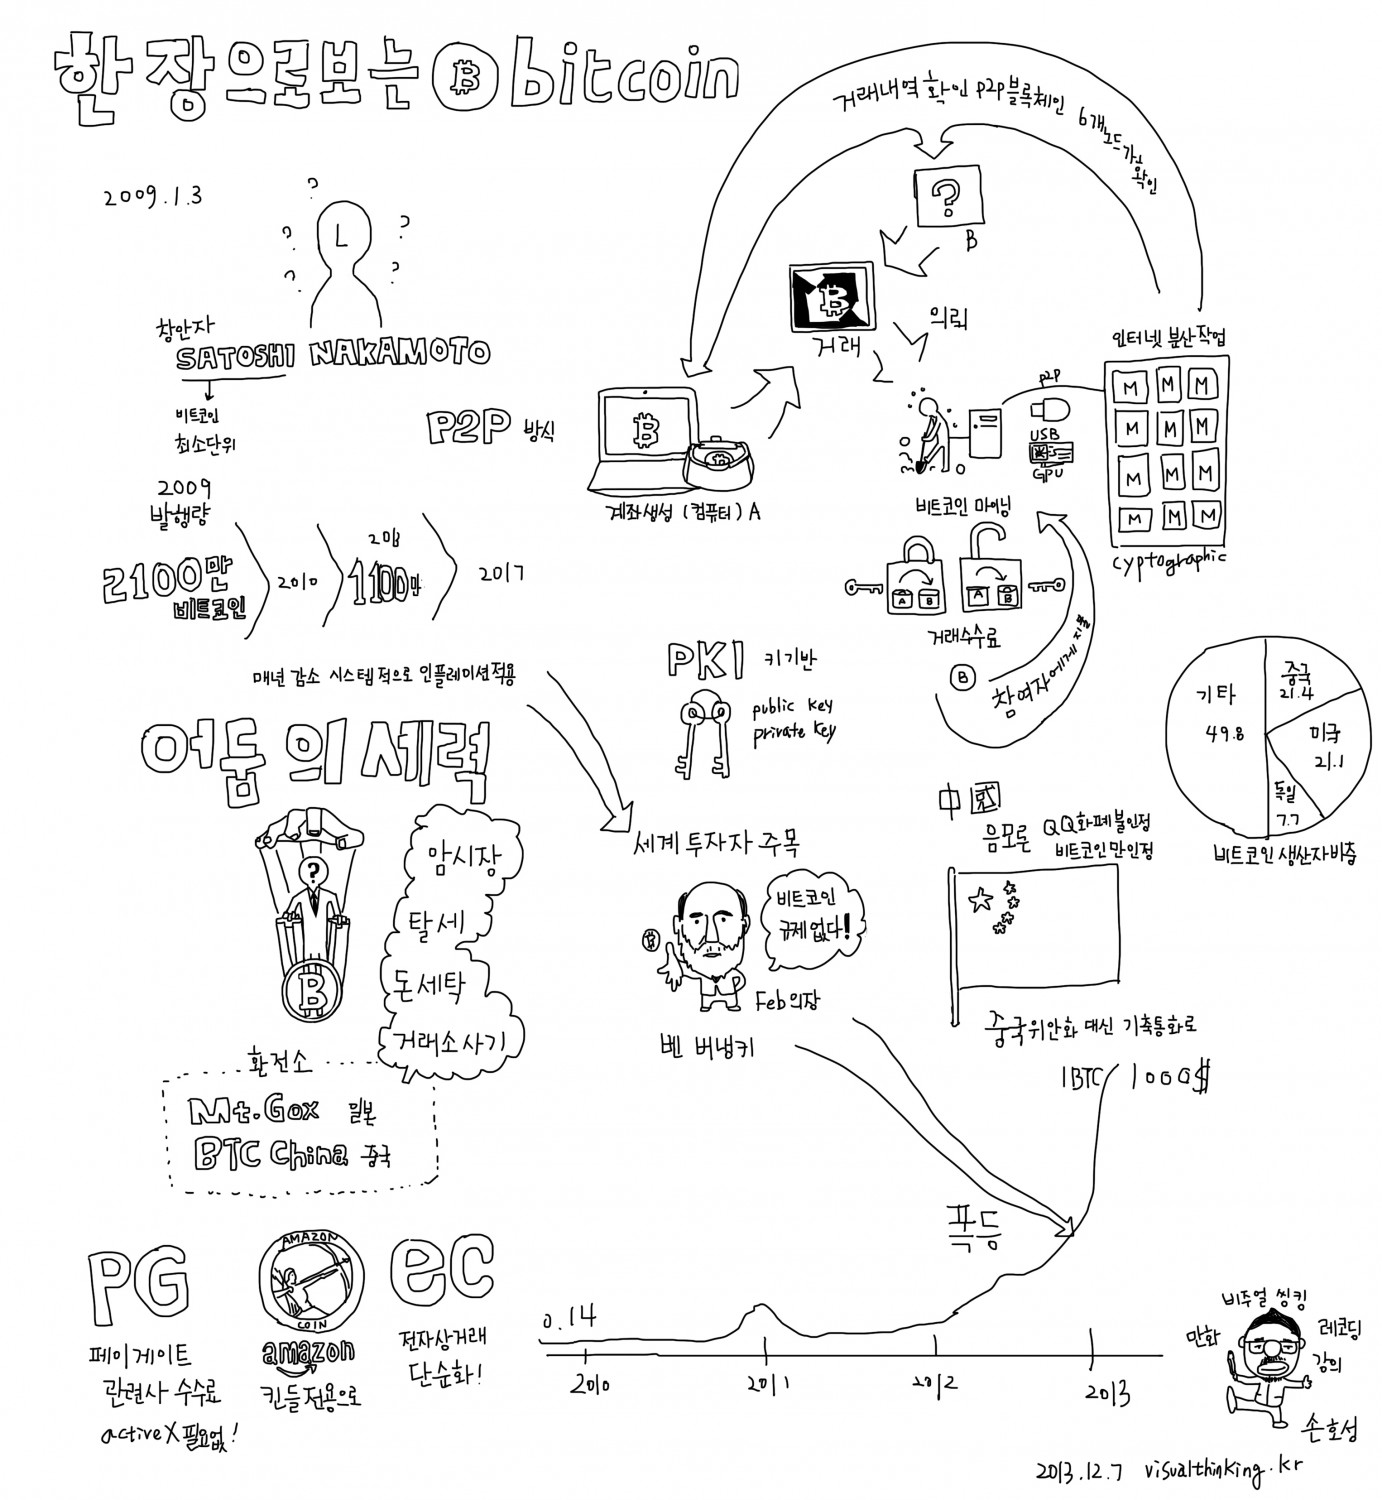 한 장으로보는 bitcoin
2009.1.3
?
?
?
?
?
L
창안자
SATOSHI NAKAMOTO
비트코인
최소단위
P2P 방식
2009
발행량
2100만
비트코인
2010
1100만
2017
매년 감소 시스템적으로 인플레이션적용
거래내역 확인 P2P블록체인 6개노드가 확인
?
B
거래
의뢰
계좌생성 (컴퓨터) A
비트코인 마이닝
P2P
USB
GPU
인터넷 분산작업
M M M
M M M
M M M
M M M
cyptographic
A B
A B
거래수수료
B
참여자에게 지불
PKI 키기반
public key
private key
기타
49.8
중국
21.4
미국
21.1
독일
7.7
비트코인 생산자비중
어둠의세력
?
B
암시장
탈세
돈세탁
거래소사기
환전소
Mt.Gox 일본
BTC China 중국
세계 투자자 주목
비트코인
규제없다!
Feb의장
벤 버냉키
中國
음모론
QQ화폐불인정
비트코인만인정
중국위안화 대신 기축통화로
1BTC 1000$
폭등
0.14
2010
2011
2012
2013
PG
페이게이트
관련사 수수료
activeX필요없!
AMAZON
COIN
amazon
킨들전용으로
ec
전자상거래
단순화!
비주얼 씽킹
만화
레코딩
강의
손호성
2013.12.7 visualthinking.kr